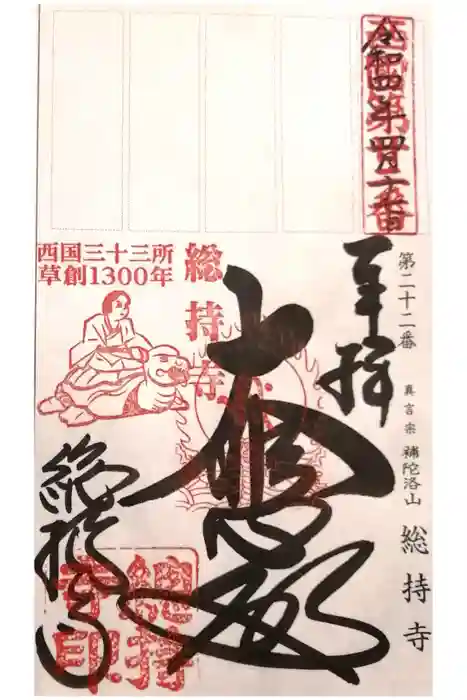 西国第二十二番
令和四年四月十六日
奉拝
第二十二番 真言宗 補陀洛山 総持寺
大悲殿
総持寺
西国三十三所
草創1300年
総持寺
総持寺印